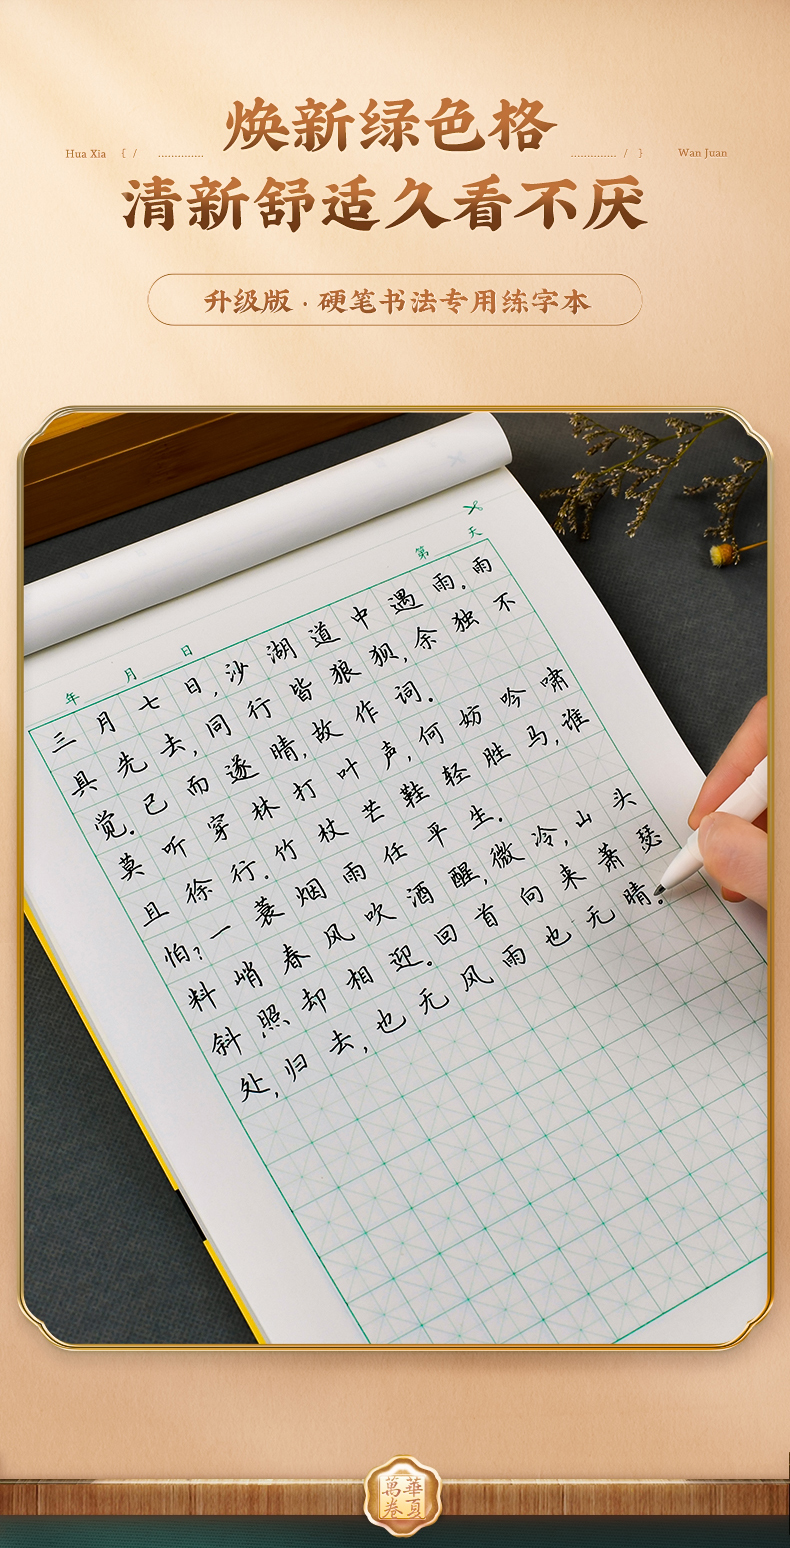 焕新绿色格
Hua Xia { / ............. ............. / } Wan Juan
清新舒适久看不厌
升级版 · 硬笔书法专用练字本
第 天
年 月 日
三月七日,沙湖道中遇雨。雨
具先去,同行皆狼狈,余独不
觉。已而遂晴,故作词。
莫听穿林打叶声,何妨吟啸
且徐行。竹杖芒鞋轻胜马,谁
怕?一蓑烟雨任平生。
料峭春风吹酒醒,微冷,山头
斜照却相迎。回首向来萧瑟
处,归去,也无风雨也无晴。
華夏
萬卷